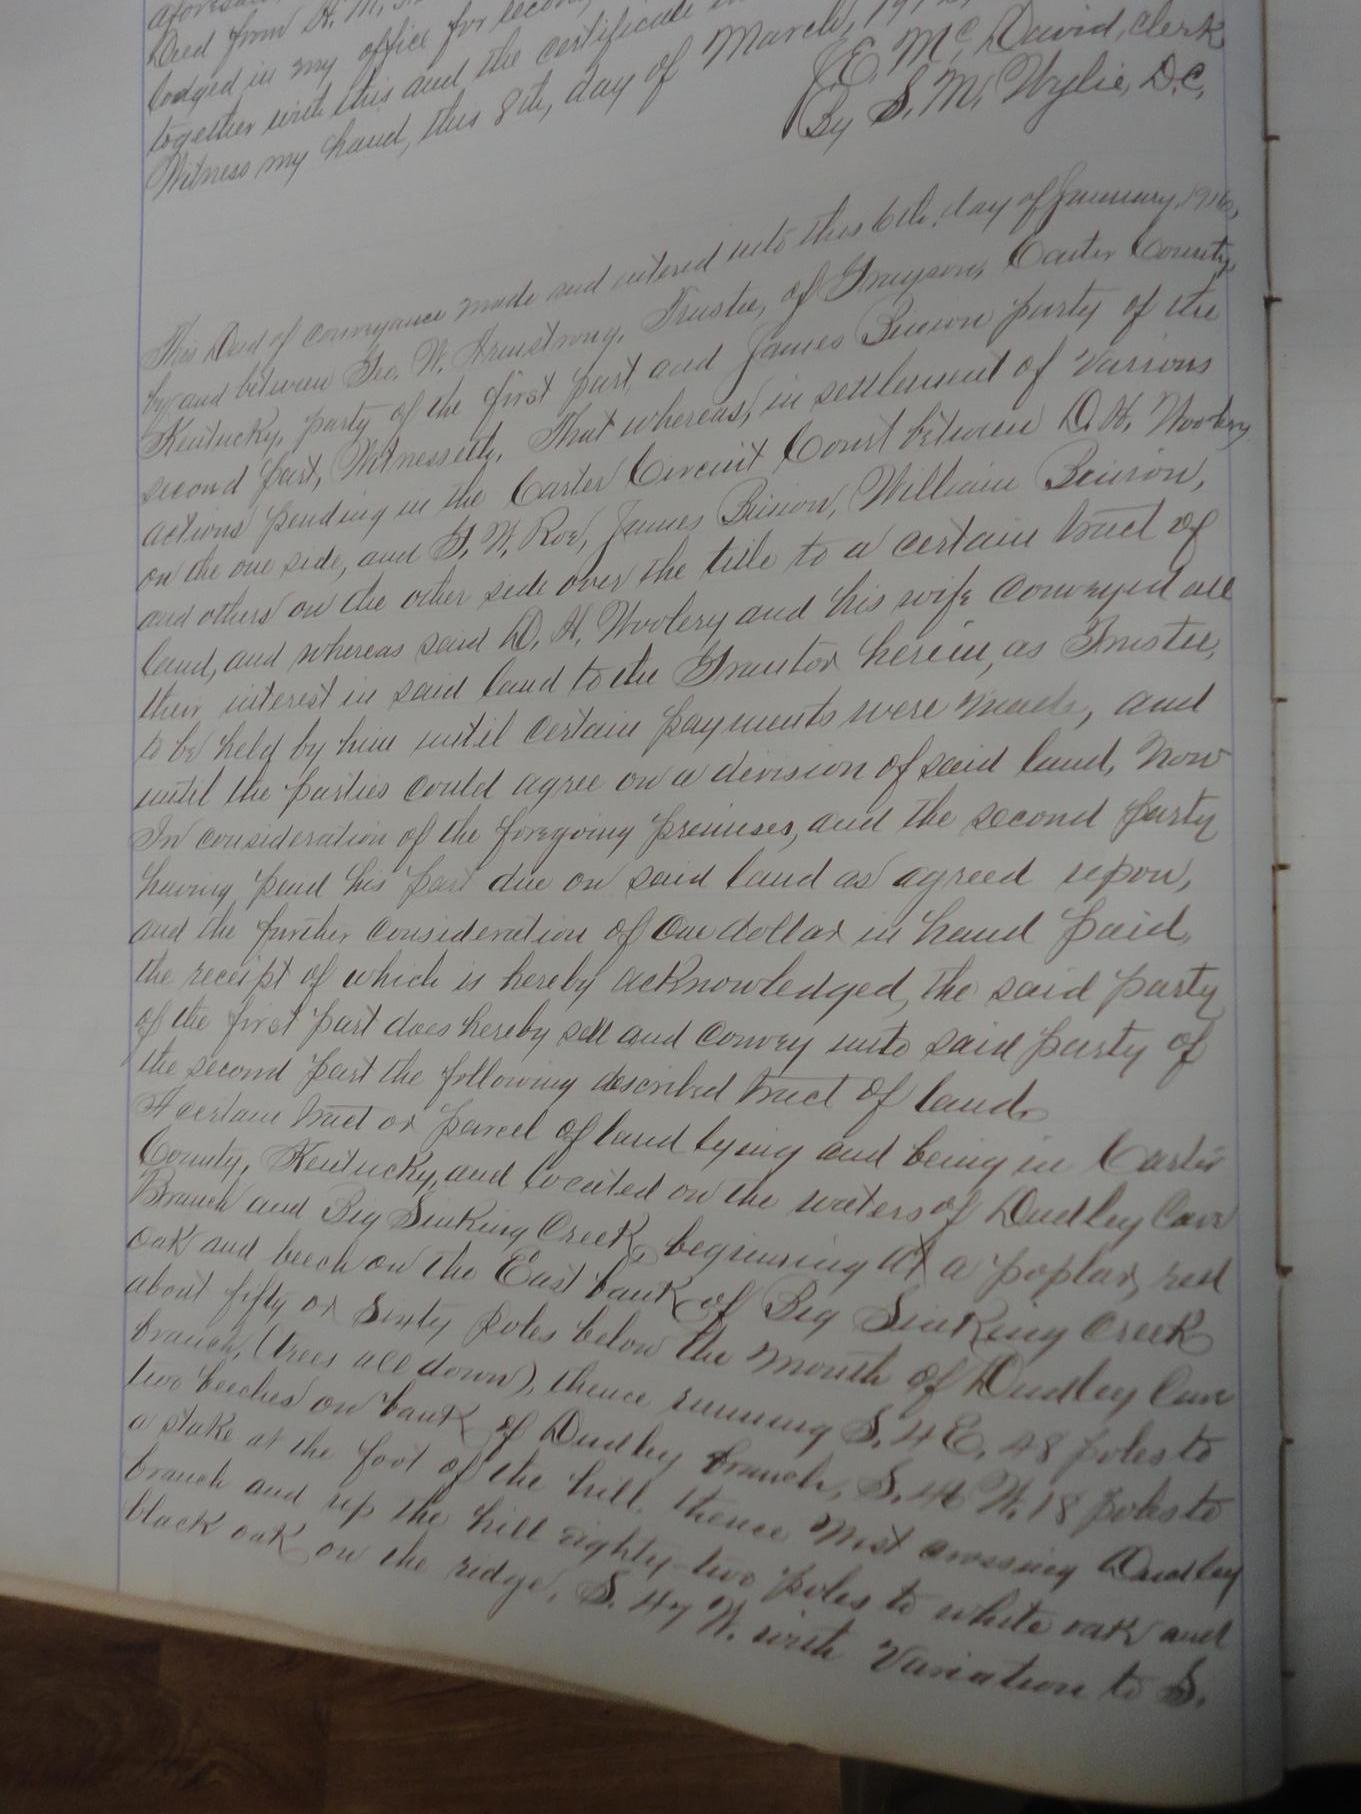 aforesaid
Deed from H. M.
lodged in my office for record,
together with this and the certificate
Witness my hand, this 8th, day of March,
J. E. McDavid, Clerk
By S. M. Wylie, D.C.
This Deed of conveyance made and entered into this 6th, day of January,
by and between Geo. W. Armstrong, Trustee, of Grayson, Carter County,
Kentucky, party of the first part, and James Binion party of the
second part, Witnesseth, That whereas, in settlement of various
actions pending in the Carter Circuit Court between D. H. Woolery
on the one side, and T. W. Roe, James Binion, William Binion,
and others on the other side over the title to a certain tract of
land, and whereas said D. H. Woolery and his wife conveyed all
their interest in said land to the Grantor herein, as Trustee,
to be held by him until certain payments were made, and
until the parties could agree on a division of said land, Now
In consideration of the foregoing premises, and the second party
having paid his part due on said land as agreed upon,
and the further consideration of One dollar in hand paid,
the receipt of which is hereby acknowledged, the said party
of the first part does hereby sell and convey unto said party of
the second part the following described tract of land.
A certain tract or parcel of land lying and being in Carter
County, Kentucky, and located on the waters of Dudley Cave
Branch and Big Sinking Creek, beginning at a poplar, red
oak and beech on the East bank of Big Sinking Creek
about fifty or sixty poles below the mouth of Dudley Cave
branch, (trees all down), thence running S. 4 E. 48 poles to
two beeches on bank of Dudley branch, S. W. 18 poles to
a stake at the foot of the hill, thence West crossing Dudley
branch and up the hill eighty-two poles to white oak and
black oak on the ridge, S. 47 W. with variation to S.